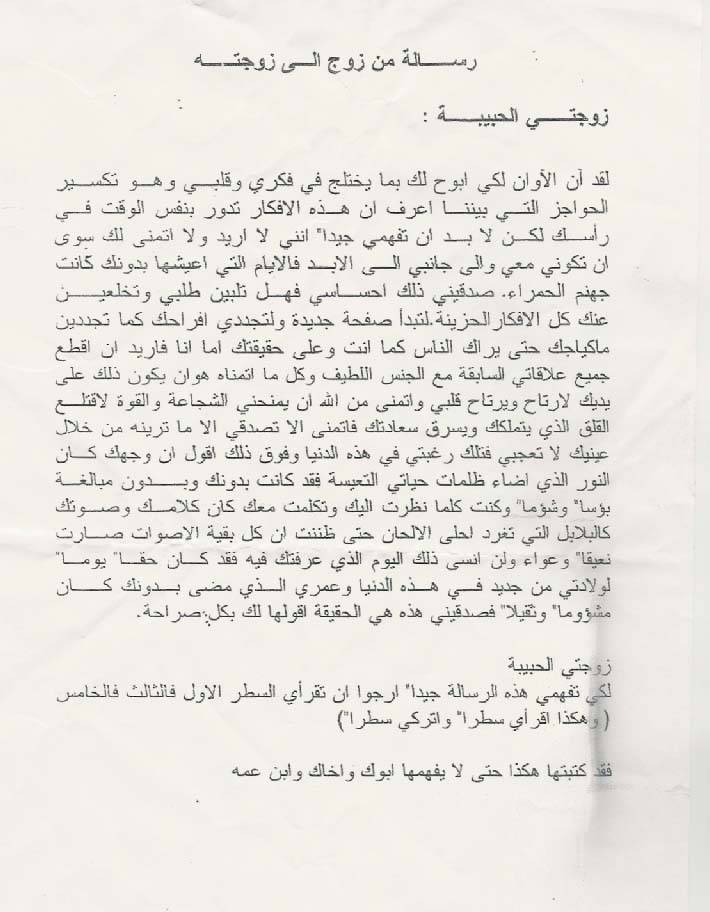 رســـــالة من زوج الـــى زوجتـــــه
زوجتـــــي الحبيبـــــة :
لقد آن الآوان لكي ابوح لك بما يختلج في فكري وقلبـــي وهـــو تكســـير
الحواجز التـــي بيننـــا اعرف ان هـــذه الافكار تدور بنفس الوقت فـــي
رأســـك لكـــن لا بـــد ان تفهمي جيدا" انني لا اريد ولا اتمنى لك سوى
ان تكوني معي والى جانبي الـــى الابـــد فالايام التي اعيشها بدونك كانت
جهنم الحمراء. صدقيني ذلك احســـاسي فهـــل تلبين طلبي وتخلعيـــن
عنك كل الافكار الحزينة.لتبدأ صفحة جديدة ولتجددي افراحك كما تجددين
ماكياجك حتى يراك الناس كما انت وعلى حقيقتك اما انا فاريد ان اقطع
جميع علاقاتي السابقة مع الجنس اللطيف وكل ما اتمناه هوان يكون ذلك على
يديك لارتاح ويرتاح قلبي واتمنى من الله ان يمنحني الشجاعة والقوة لاقتلـــع
القلق الذي يتملكك ويسرق سعادتك فاتمنى الا تصدقي الا ما ترينه من خلال
عينيك لا تعجبي فتلك رغبتي في هذه الدنيا وفوق ذلك اقول ان وجهك كـــان
النور الذي اضاء ظلمات حياتي التعيسة فقد كانت بدونك وبـــدون مبالغـــة
بؤسا" وشؤما" وكنت كلما نظرت اليك وتكلمت معك كان كلامـــك وصوتـــك
كالبلابل التي تغرد احلى الالحان حتى ظننت ان كل بقية الاصوات صـــارت
نعيقا" وعواء ولن انسى ذلك اليوم الذي عرفتك فيه فقد كـــان حقـــا" يومـــا"
لولادتي من جديد فـــي هـــذه الدنيا وعمري الـــذي مضى بـــدونك كـــــان
مشؤوما" وثقيلا" فصدقيني هذه هي الحقيقة اقولها لك بكل صراحة.
زوجتي الحبيبة
لكي تفهمي هذه الرسالة جيدا" ارجوا ان تقرأي السطر الاول فالثالث فالخامس
( وهكذا اقرأي سطرا" واتركي سطرا")
فقد كتبتها هكذا حتى لا يفهمها ابوك واخاك وابن عمه